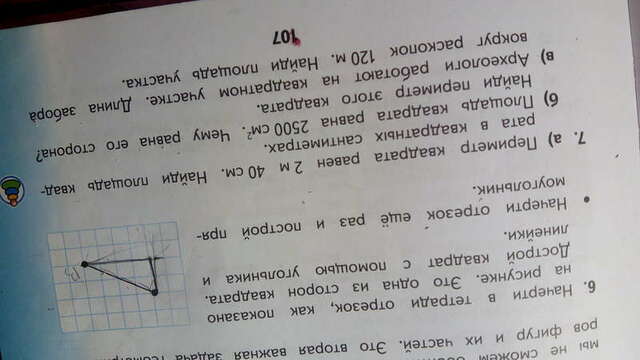 мы не сможем
ров фигур и их частей. Это вторая важная задача
6. Начерти в тетради отрезок, как показано
на рисунке. Это одна из сторон квадрата.
Дострой квадрат с помощью угольника и
линейки.
• Начерти отрезок ещё раз и построй пря-
моугольник.
7. а) Периметр квадрата равен 2 м 40 см. Найди площадь квад-
рата в квадратных сантиметрах.
б) Площадь квадрата равна 2500 см². Чему равна его сторона?
Найди периметр этого квадрата.
в) Археологи работают на квадратном участке. Длина забора
вокруг раскопок 120 м. Найди площадь участка.
107